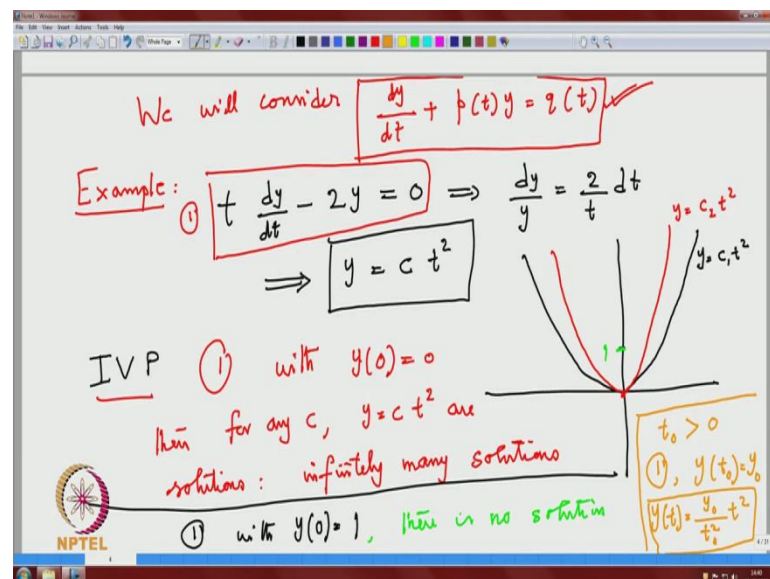 Note1 - Windows Journal
File Edit View Insert Actions Tools Help
Whole Page
We will consider dy/dt + p(t) y = q(t)
Example: ① t dy/dt - 2y = 0 ⇒ dy/y = 2/t dt
⇒ y = c t²
y = c₂ t²
y = c₁ t²
1
IVP ① with y(0) = 0
then for any c, y = c t² are
solutions : infinitely many solutions
① with y(0) = 1, there is no solution
t₀ > 0
①, y(t₀) = y₀
y(t) = y₀/t₀² t²
NPTEL
14:40